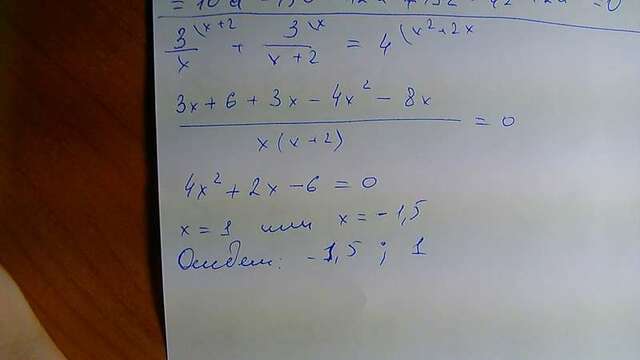 3/x \x+2 + 3/(x+2) \x = 4 \x²+2x
(3x + 6 + 3x - 4x² - 8x)/(x(x+2)) = 0
4x² + 2x - 6 = 0
x = 1 или x = -1,5
Ответ: -1,5 ; 1